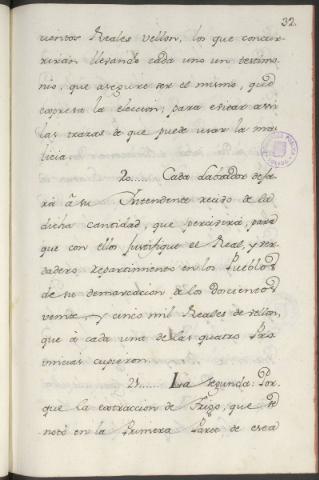 32.
cientos Reales vellon, los que concur-
rirán llevando cada uno un testimo-
nio, que asegure ser el mismo, que
expresa la eleccion, para evitar assi
las trazas de que puede usar la ma-
licia.
20..... Cada Labrador dexa-
rá â su Intendente recivo de la
dicha cantidad, que percivirá, para
que con ellos justifique el Real, y ver-
dadero repartimiento en los Pueblos
de su demarcacion de los Doscientos
veinte, y cinco mil Reales de vellon,
que â cada una de las quatro Pro-
vincias cupieron.
21...... La segunda: Por-
que la extraccion de Trigo, que se
notó en la Primera Parte de esta